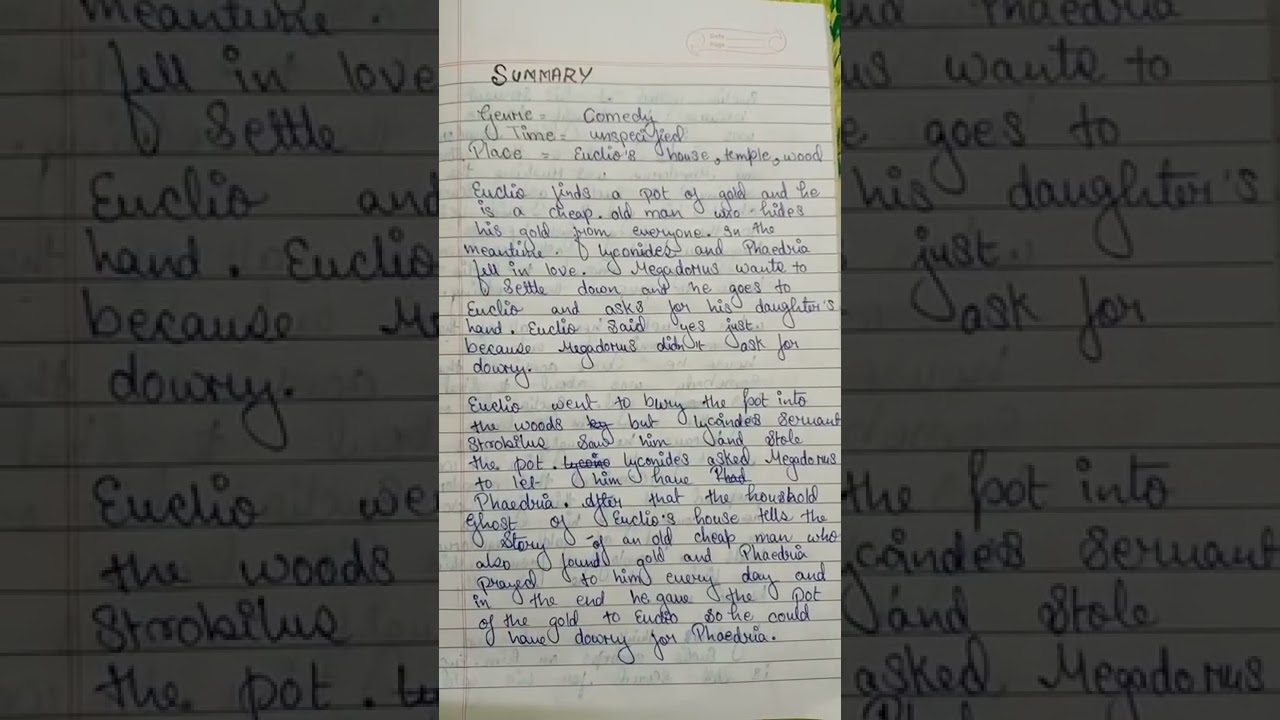 SUMMARY
Genre = Comedy
Time = unspecified
Place = Euclio's house, temple, wood
Euclio finds a pot of gold and he
is a cheap old man who hides
his gold from everyone. In the
meantime. Lyconides and Phaedria
fell in love. Megadorus wants to
Settle down and he goes to
Euclio and asks for his daughter's
hand. Euclio said yes just
because Megadorus didn't ask for
dowry.
Euclio went to bury the pot into
the woods but lycandes servant
Strobilus saw him and stole
the pot. lyconides asked Megadorus
to let him have
Phaedria. After that the houshold
Ghost of Euclio's house tells the
Story of an old cheap man who
also found gold and Phaedria
prayed to him every day and
in the end he gave the pot
of the gold to Euclio so he could
have dowry for Phaedria.